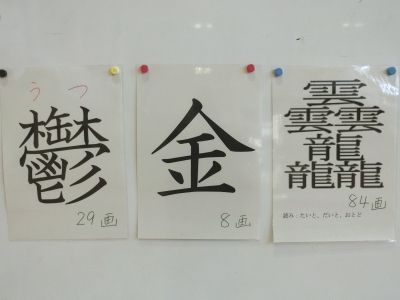 うつ
鬱
29画
金
8画
雲
雲雲
龍
龍龍
84画
読み:たいと、だいと、おとど